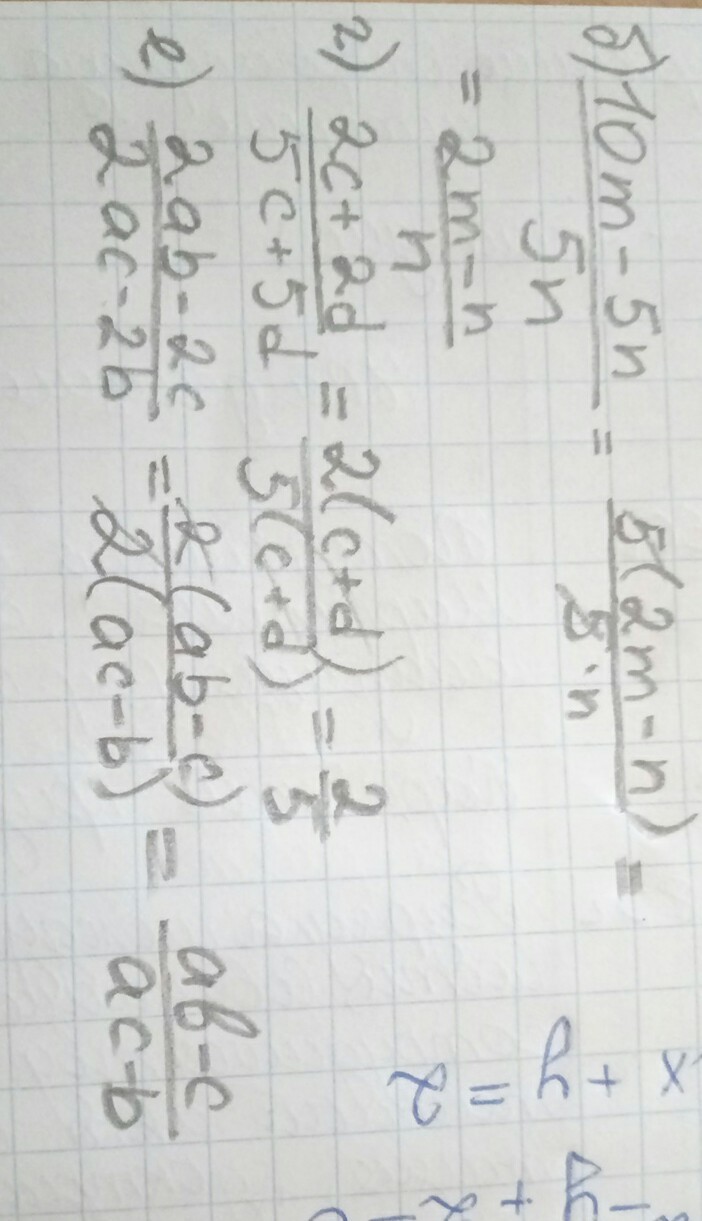 б) 10m - 5n / 5n = 5(2m - n) / 5·n =
= 2m - n / n
г) 2c + 2d / 5c + 5d = 2(c + d) / 5(c + d) = 2 / 5
е) 2ab - 2c / 2ac - 2b = 2(ab - c) / 2(ac - b) = ab - c / ac - b
x + y = 2